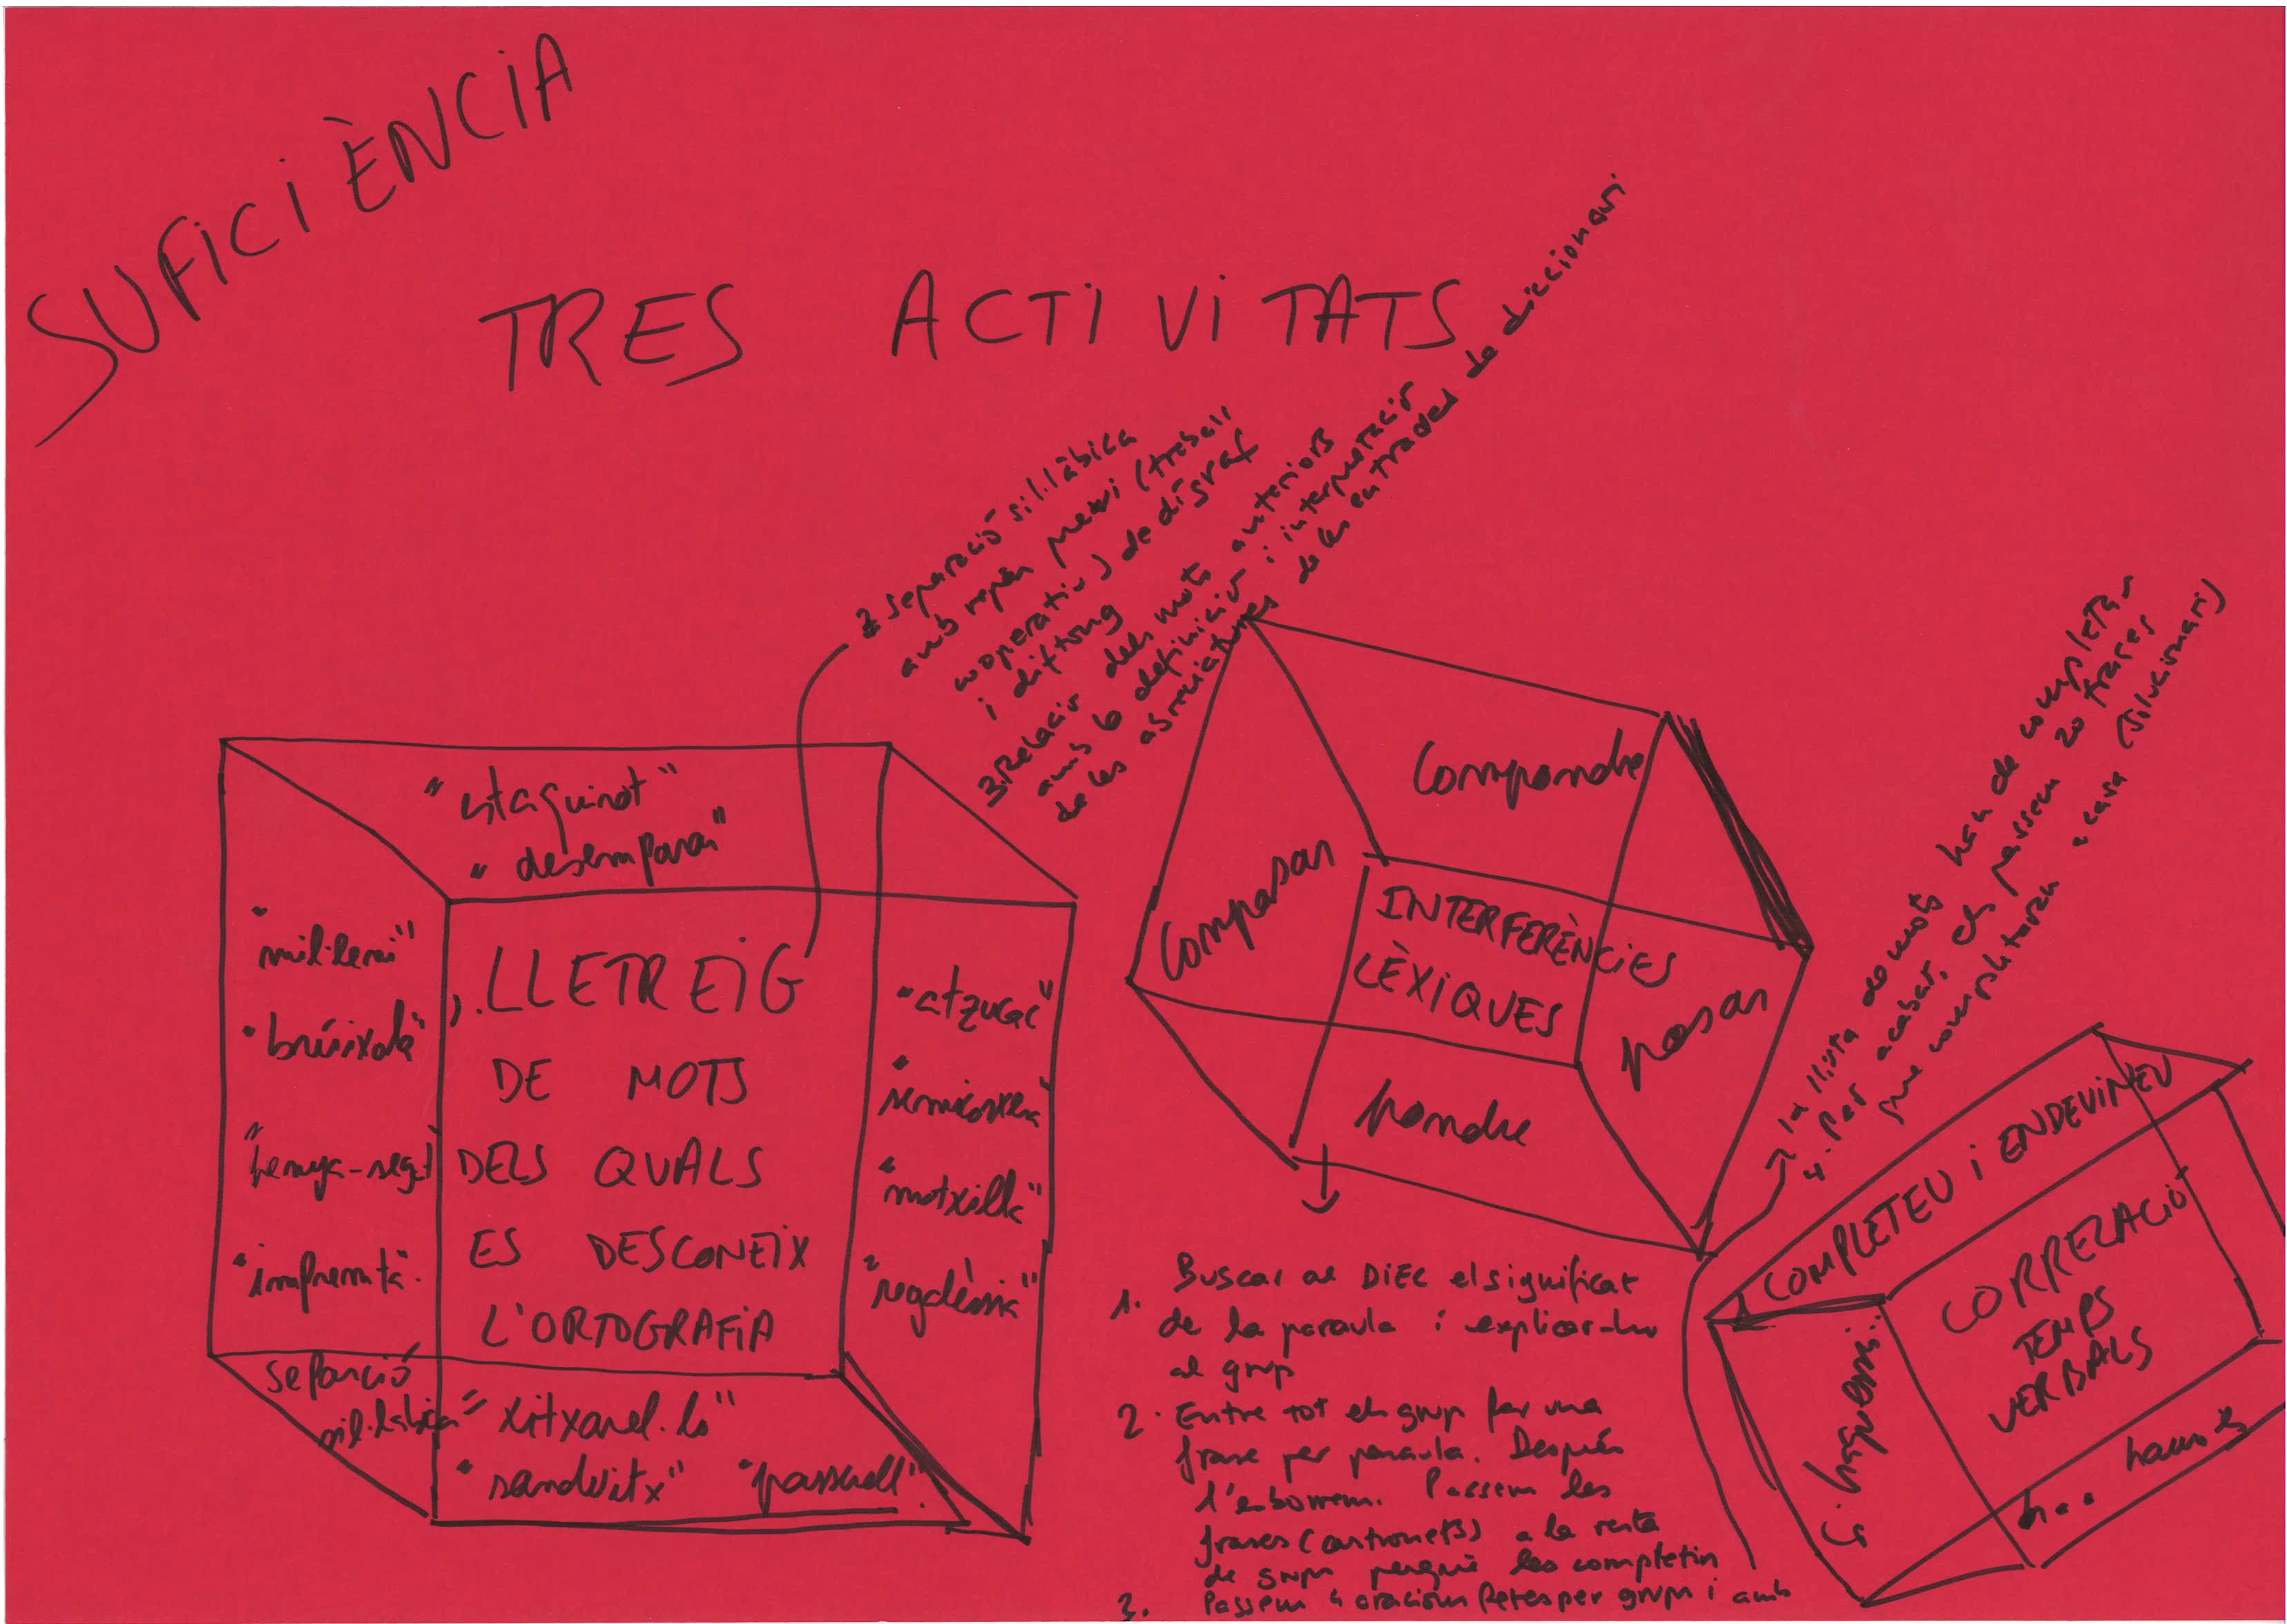 SUFICIÈNCIA
TRES ACTIVITATS
"estaquirot"
"desemparar"
"mil·lenni"
"brúixola"
"penya-segat
"impremta"
1. LLETREIG
DE MOTS
DELS QUALS
ES DESCONEIX
L'ORTOGRAFIA
"atzucac"
"semicorxera"
"motxilla"
"regalèssia"
separació
sil·làbica
"xitxarel·lo"
"sandvitx" "passadell"
2 separació sil·làbica
amb repàs previ (treball
cooperatiu) de dígraf
i diftong
3. Relació dels mots anteriors
amb la definició i interpretació
de les abreviatures de les entrades de diccionari
Compondre
Composar
INTERFERÈNCIES
LÈXIQUES
posar
pondre
1. Buscar al DIEC el significat
de la paraula i explicar-ho
al grup
2. Entre tot el grup fer una
frase per paraula. Després
l'esborrem. Passem les
frases (cartronets) a la resta
de grups perquè les completin
3. Passem 4 oracions fetes per grup i amb
la llista de mots han de completar
4. per acabar, els passem 20 frases
que completaran a casa (solucionari)
COMPLETEU i ENDEVINEU
CORRELACIÓ
TEMPS
VERBALS
h...